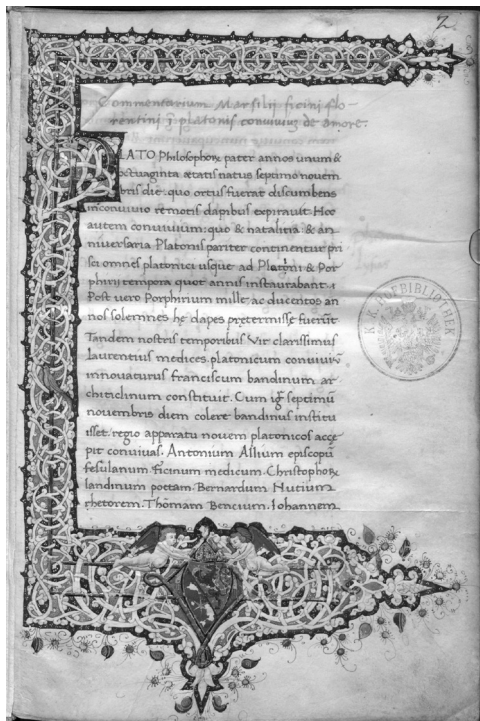 2
Commentarium Marsilij ficini flo-
rentini ī platonis convivium de amore.
PLATO Philosophorꝝ pater annos unum &
octuaginta ætatis natus septimo novem
bris die. quo ortus fuerat discumbens
in convivio remotis dapibus expiravit. Hoc
autem convivium: quo & natalitia & an
niversaria Platonis pariter continentur pri
sci omnes platonici usque ad Plotini & Por
phirii tempora quot annis instaurabant.
Post vero Porphirium mille ac ducentos an
nos solemnes he dapes pretermisse fuerūt
Tandem nostris temporibus Vir clarissimus
Laurentius medices. platonicum conviviū
innovaturus franciscum bandinum ar
chitriclinum constituit. Cum igr̄ septimū
novembris diem colere bandinus institu
isset. regio apparatu novem platonicos acce
pit convivas. Antonium Allium episcopū
fesulanum. Ficinum medicum. Christophorꝝ
landinum poetam. Bernardum Nutium
rhetorem. Thōmam Bencium. Iohannem
K. K. HOFBIBLIOTHEK